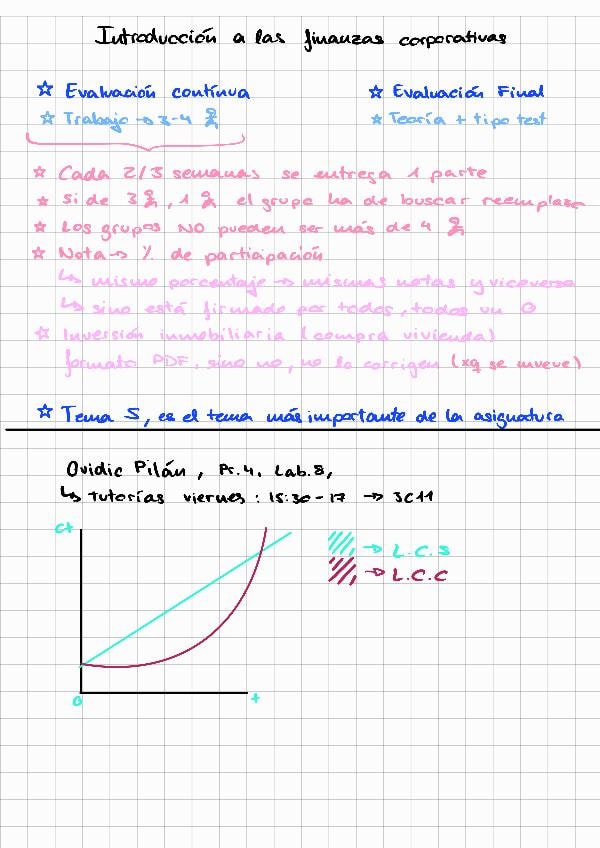 Introducción a las finanzas corporativas
☆ Evaluación contínua
☆ Evaluación Final
☆ Trabajo → 3-4
☆ Teoría + tipo test
☆ Cada 2/3 semanas se entrega 1 parte
☆ Si de 3, 1 el grupo ha de buscar reemplazo
☆ Los grupos NO pueden ser más de 4
☆ Nota → % de participación
↳ mismo porcentaje → mismas notas y viceversa
↳ sino está firmado por todos, todos un 0
☆ Inversión inmobiliaria (compra vivienda)
formato PDF, sino no, no lo corrigen (xq se mueve)
☆ Tema 5, es el tema más importante de la asignatura
Ovidic Pilán, Pr.4, Lab.8,
↳ tutorías viernes: 15:30-17 → 3C11
Ct
→ L.C.S
→ L.C.C
0
t